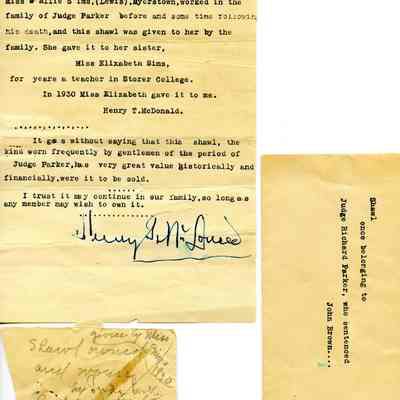 Miss Allie Sims,(Lewis),Myerstown,worked in the
family of Judge Parker before and some time following
his death,and this shawl was given to her by the
family. She gave it to her sister,
Miss Elizabeth Sims,
for years a teacher in Storer College.
In 1930 Miss Elizabeth gave it to me.
Henry T.McDonald.
..................
It goes without saying that this shawl, the
kind worn frequently by gentlemen of the period of
Judge Parker,has very great value historically and
financially,were it to be sold.
............
I trust it may continue in our family,so long as
any member may wish to own it.
Henry T. McDonald
given by Miss
Shawl owned
and worn
by
Shawl
once belonging to
Judge Richard Parker, who sentenced
John Brown....